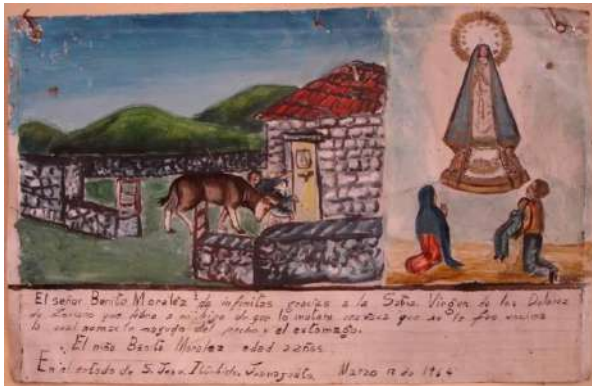 El señor Benito Moralez da infinitas gracias a la Sma. Virgen de los Dolores
de que libro a mi hijo de que lo matara una vaca que se le fue encima
lo cual nomas lo maguyo del pecho y el estomago.
El niño Benito Moralez edad 2 años.
En el estado de S. Jose Marzo 17 de 1964